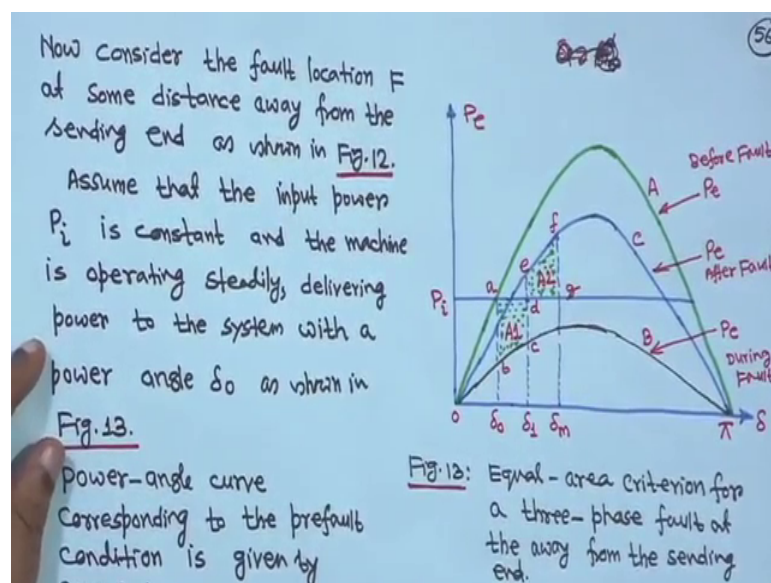 56
Now consider the fault location F
at some distance away from the
sending end as shown in Fig.12.
Assume that the input power
Pi is constant and the machine
is operating steadily, delivering
power to the system with a
power angle δ0 as shown in
Fig.13.
Power-angle curve
corresponding to the prefault
condition is given by
Pe
Before Fault
A
Pe
f
C
Pe
After Fault
e
A2
Pi
a
d
g
A1
B
Pe
During
Fault
b
c
0
δ0
δ1
δm
π
δ
Fig.13: Equal-area criterion for
a three-phase fault at
the away from the sending
end.